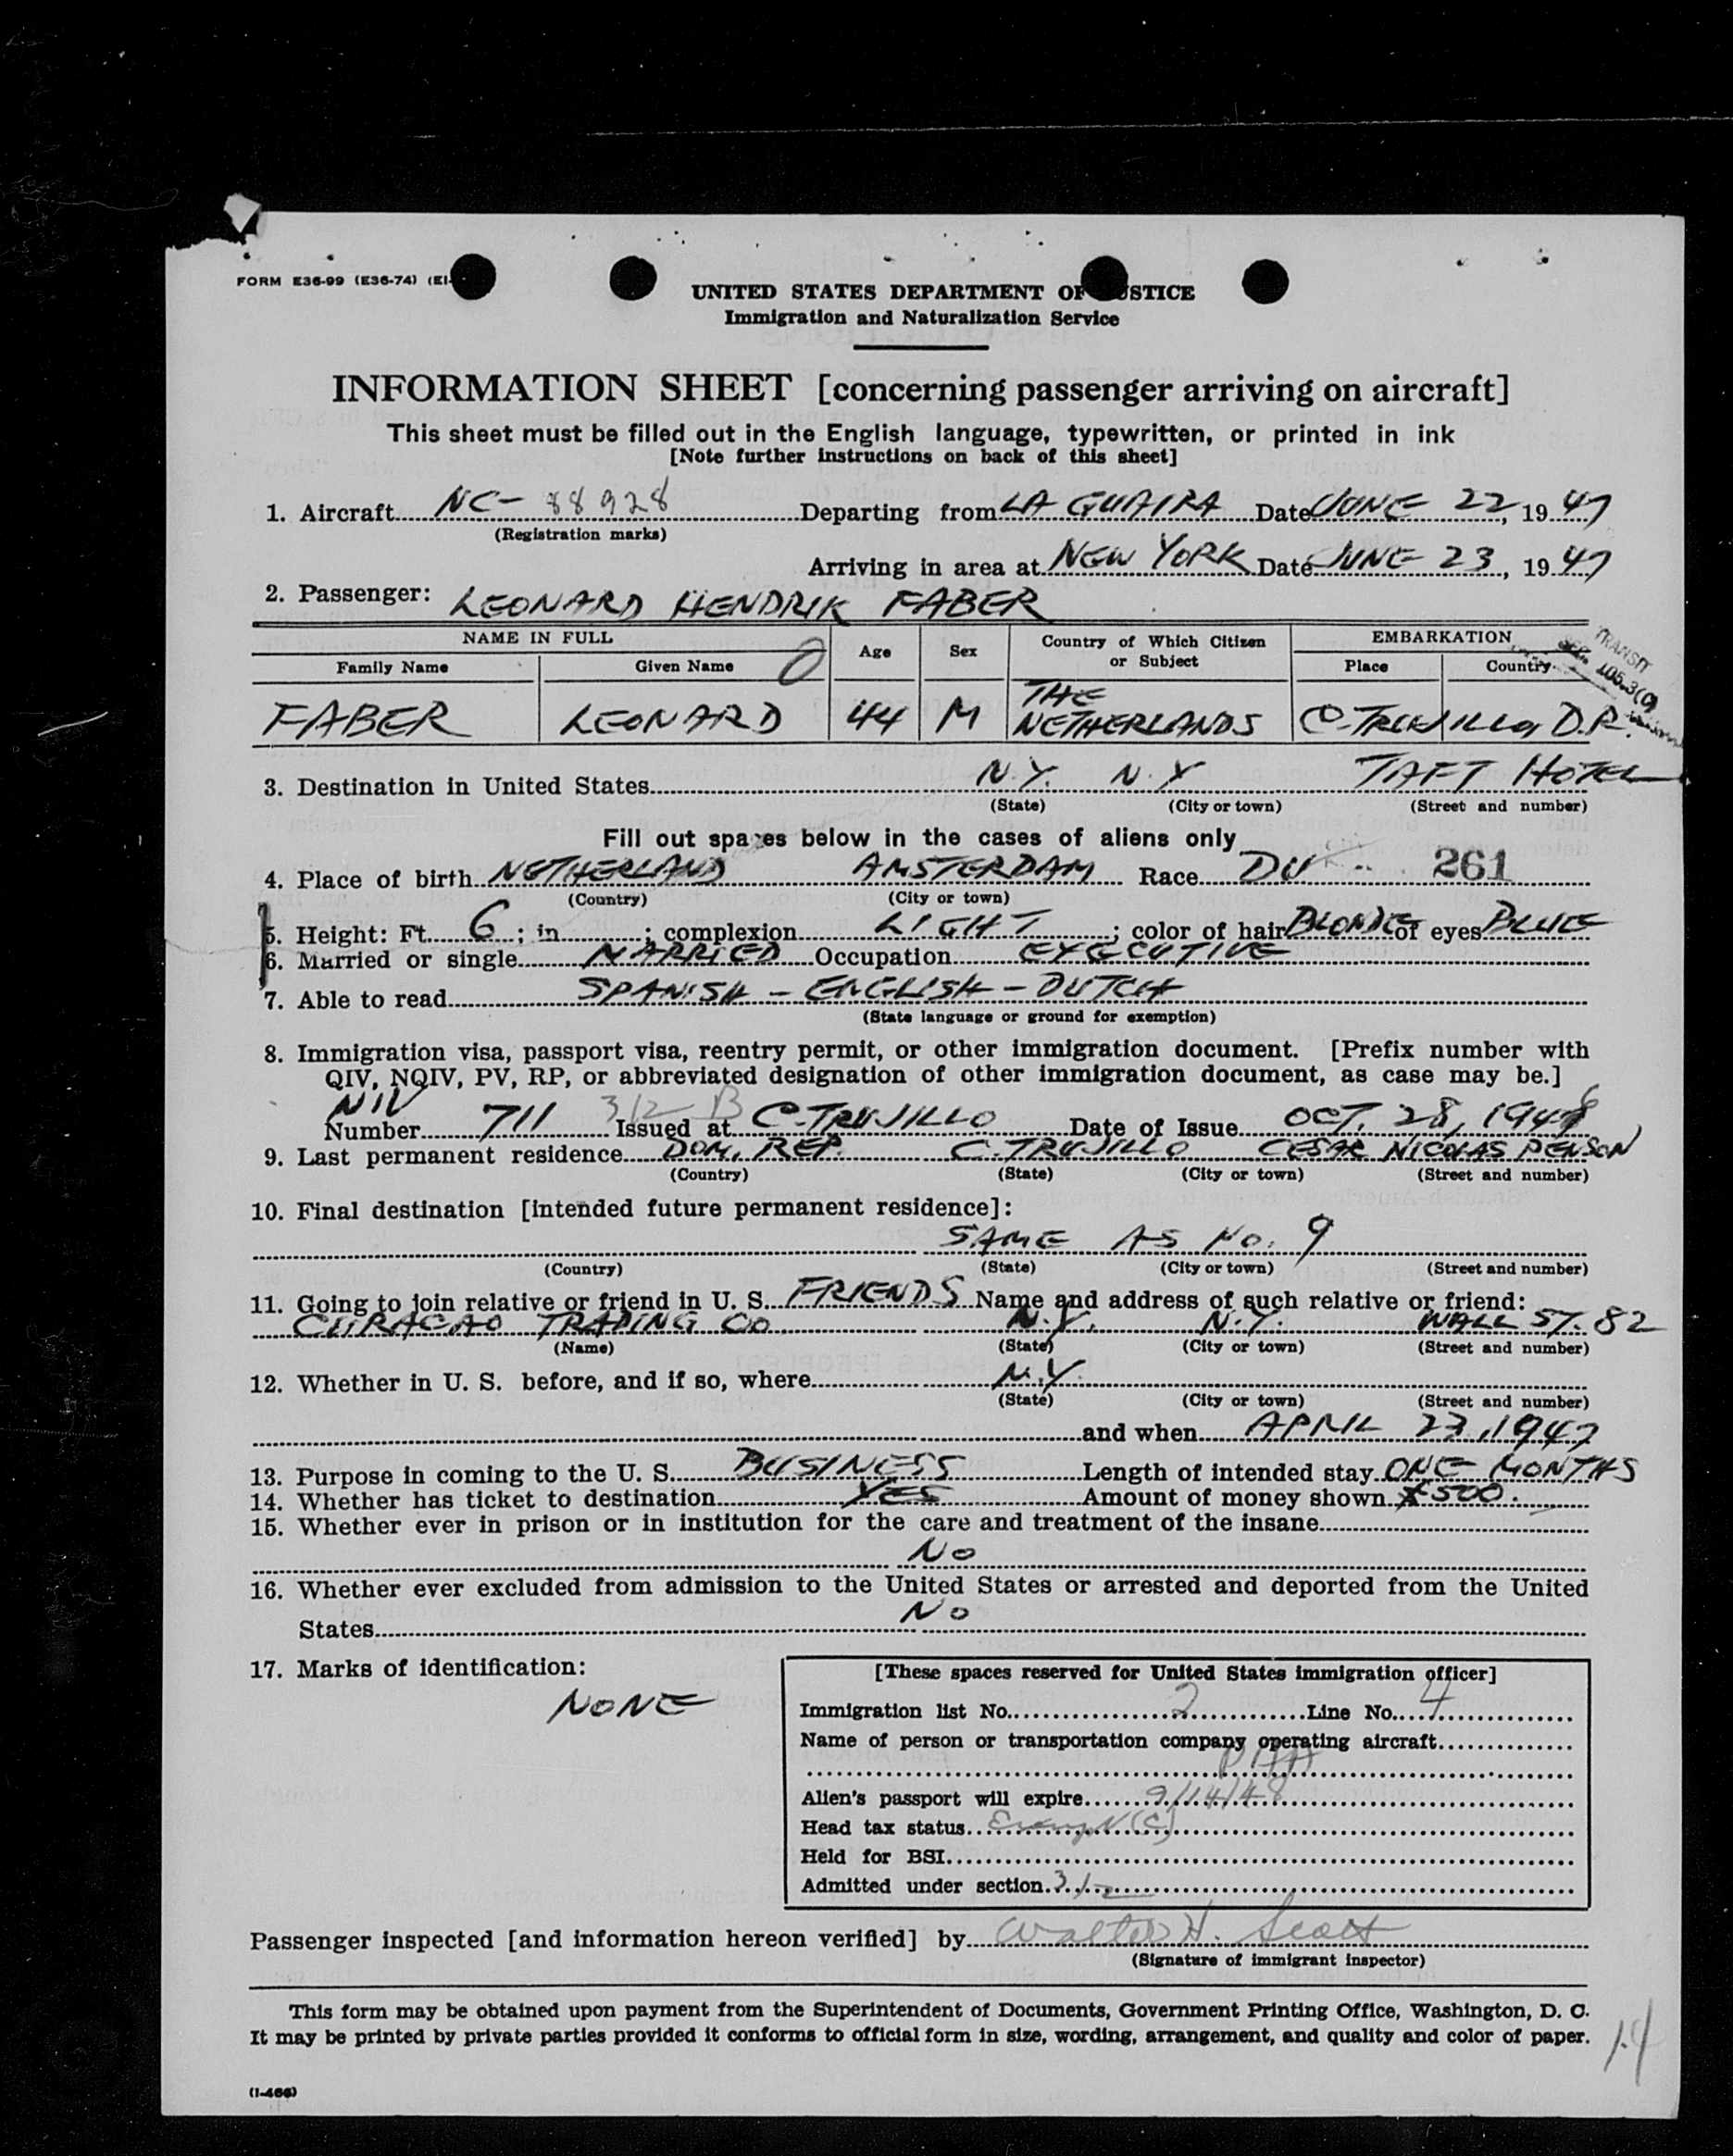 FORM E36-99 (E36-74) (EI-
UNITED STATES DEPARTMENT OF JUSTICE
Immigration and Naturalization Service
INFORMATION SHEET [concerning passenger arriving on aircraft]
This sheet must be filled out in the English language, typewritten, or printed in ink
[Note further instructions on back of this sheet]
1. Aircraft NC- 88928 Departing from LA GUAIRA Date JUNE 22, 1947
(Registration marks)
Arriving in area at NEW YORK Date JUNE 23, 1947
2. Passenger: LEONARD HENDRIK FABER
NAME IN FULL Age Sex Country of Which Citizen or Subject EMBARKATION
Family Name Given Name Place Country
TRANSIT
SEC. 105.3(c)
FABER LEONARD 44 M THE NETHERLANDS C. TRUJILLO, D.R.
3. Destination in United States N.Y. N.Y TAFT HOTEL
(State) (City or town) (Street and number)
Fill out spaces below in the cases of aliens only
4. Place of birth NETHERLAND AMSTERDAM Race DU 261
(Country) (City or town)
5. Height: Ft. 6; in ; complexion LIGHT; color of hair BLONDE of eyes BLUE
6. Married or single MARRIED Occupation EXECUTIVE
7. Able to read SPANISH - ENGLISH - DUTCH
(State language or ground for exemption)
8. Immigration visa, passport visa, reentry permit, or other immigration document. [Prefix number with
QIV, NQIV, PV, RP, or abbreviated designation of other immigration document, as case may be.]
NIV 3/2 B
Number 711 Issued at C. TRUJILLO Date of Issue OCT. 28, 1946
9. Last permanent residence DOM. REP. C. TRUJILLO CESAR NICOLAS PENSON
(Country) (State) (City or town) (Street and number)
10. Final destination [intended future permanent residence]:
SAME AS NO. 9
(Country) (State) (City or town) (Street and number)
11. Going to join relative or friend in U. S. FRIENDS Name and address of such relative or friend:
CURACAO TRADING CO N.Y. N.Y. WALL ST. 82
(Name) (State) (City or town) (Street and number)
12. Whether in U. S. before, and if so, where N.Y.
(State) (City or town) (Street and number)
and when APRIL 23, 1947
13. Purpose in coming to the U. S. BUSINESS Length of intended stay ONE MONTHS
14. Whether has ticket to destination YES Amount of money shown $500.
15. Whether ever in prison or in institution for the care and treatment of the insane
NO
16. Whether ever excluded from admission to the United States or arrested and deported from the United
States NO
17. Marks of identification:
NONE
[These spaces reserved for United States immigration officer]
Immigration list No. 2 Line No. 4
Name of person or transportation company operating aircraft
PAA
Alien's passport will expire 9/14/48
Head tax status Exempt (C)
Held for BSI
Admitted under section 3/2
Passenger inspected [and information hereon verified] by Walter H. Scott
(Signature of immigrant inspector)
This form may be obtained upon payment from the Superintendent of Documents, Government Printing Office, Washington, D. C.
It may be printed by private parties provided it conforms to official form in size, wording, arrangement, and quality and color of paper.
14
(I-466)